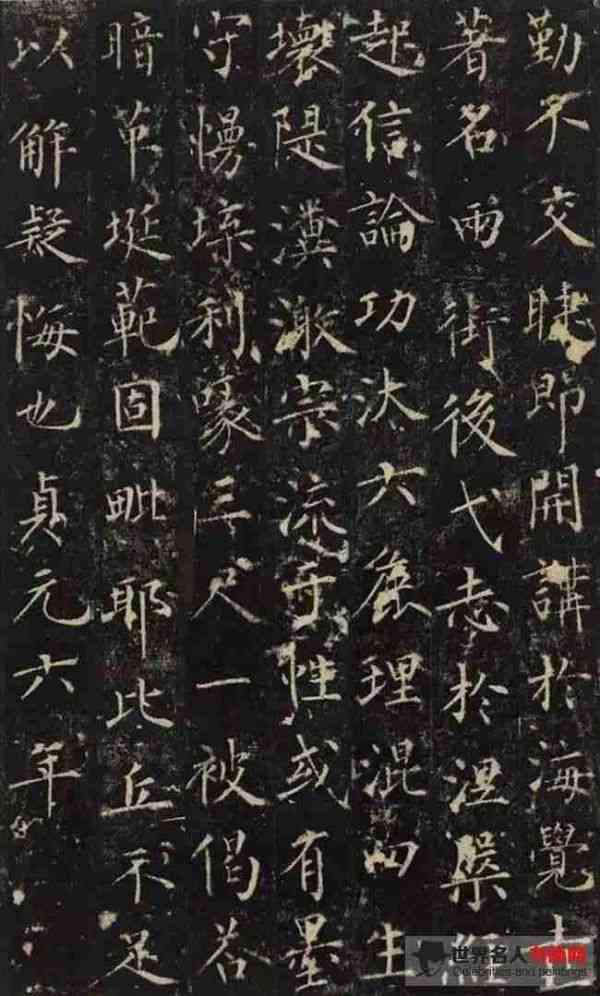 勤不交睫即開講於海覺寺
著名兩街後弋志於涅槃經
起信論功汰六麁理混四生
壞隄瀵激宗流性或有墨
守慢垛利喙三尺一被偈答
暗埏範固毗耶比丘不足
以解疑悔也貞元六年
世界名人书画网
Celebrities and paintings